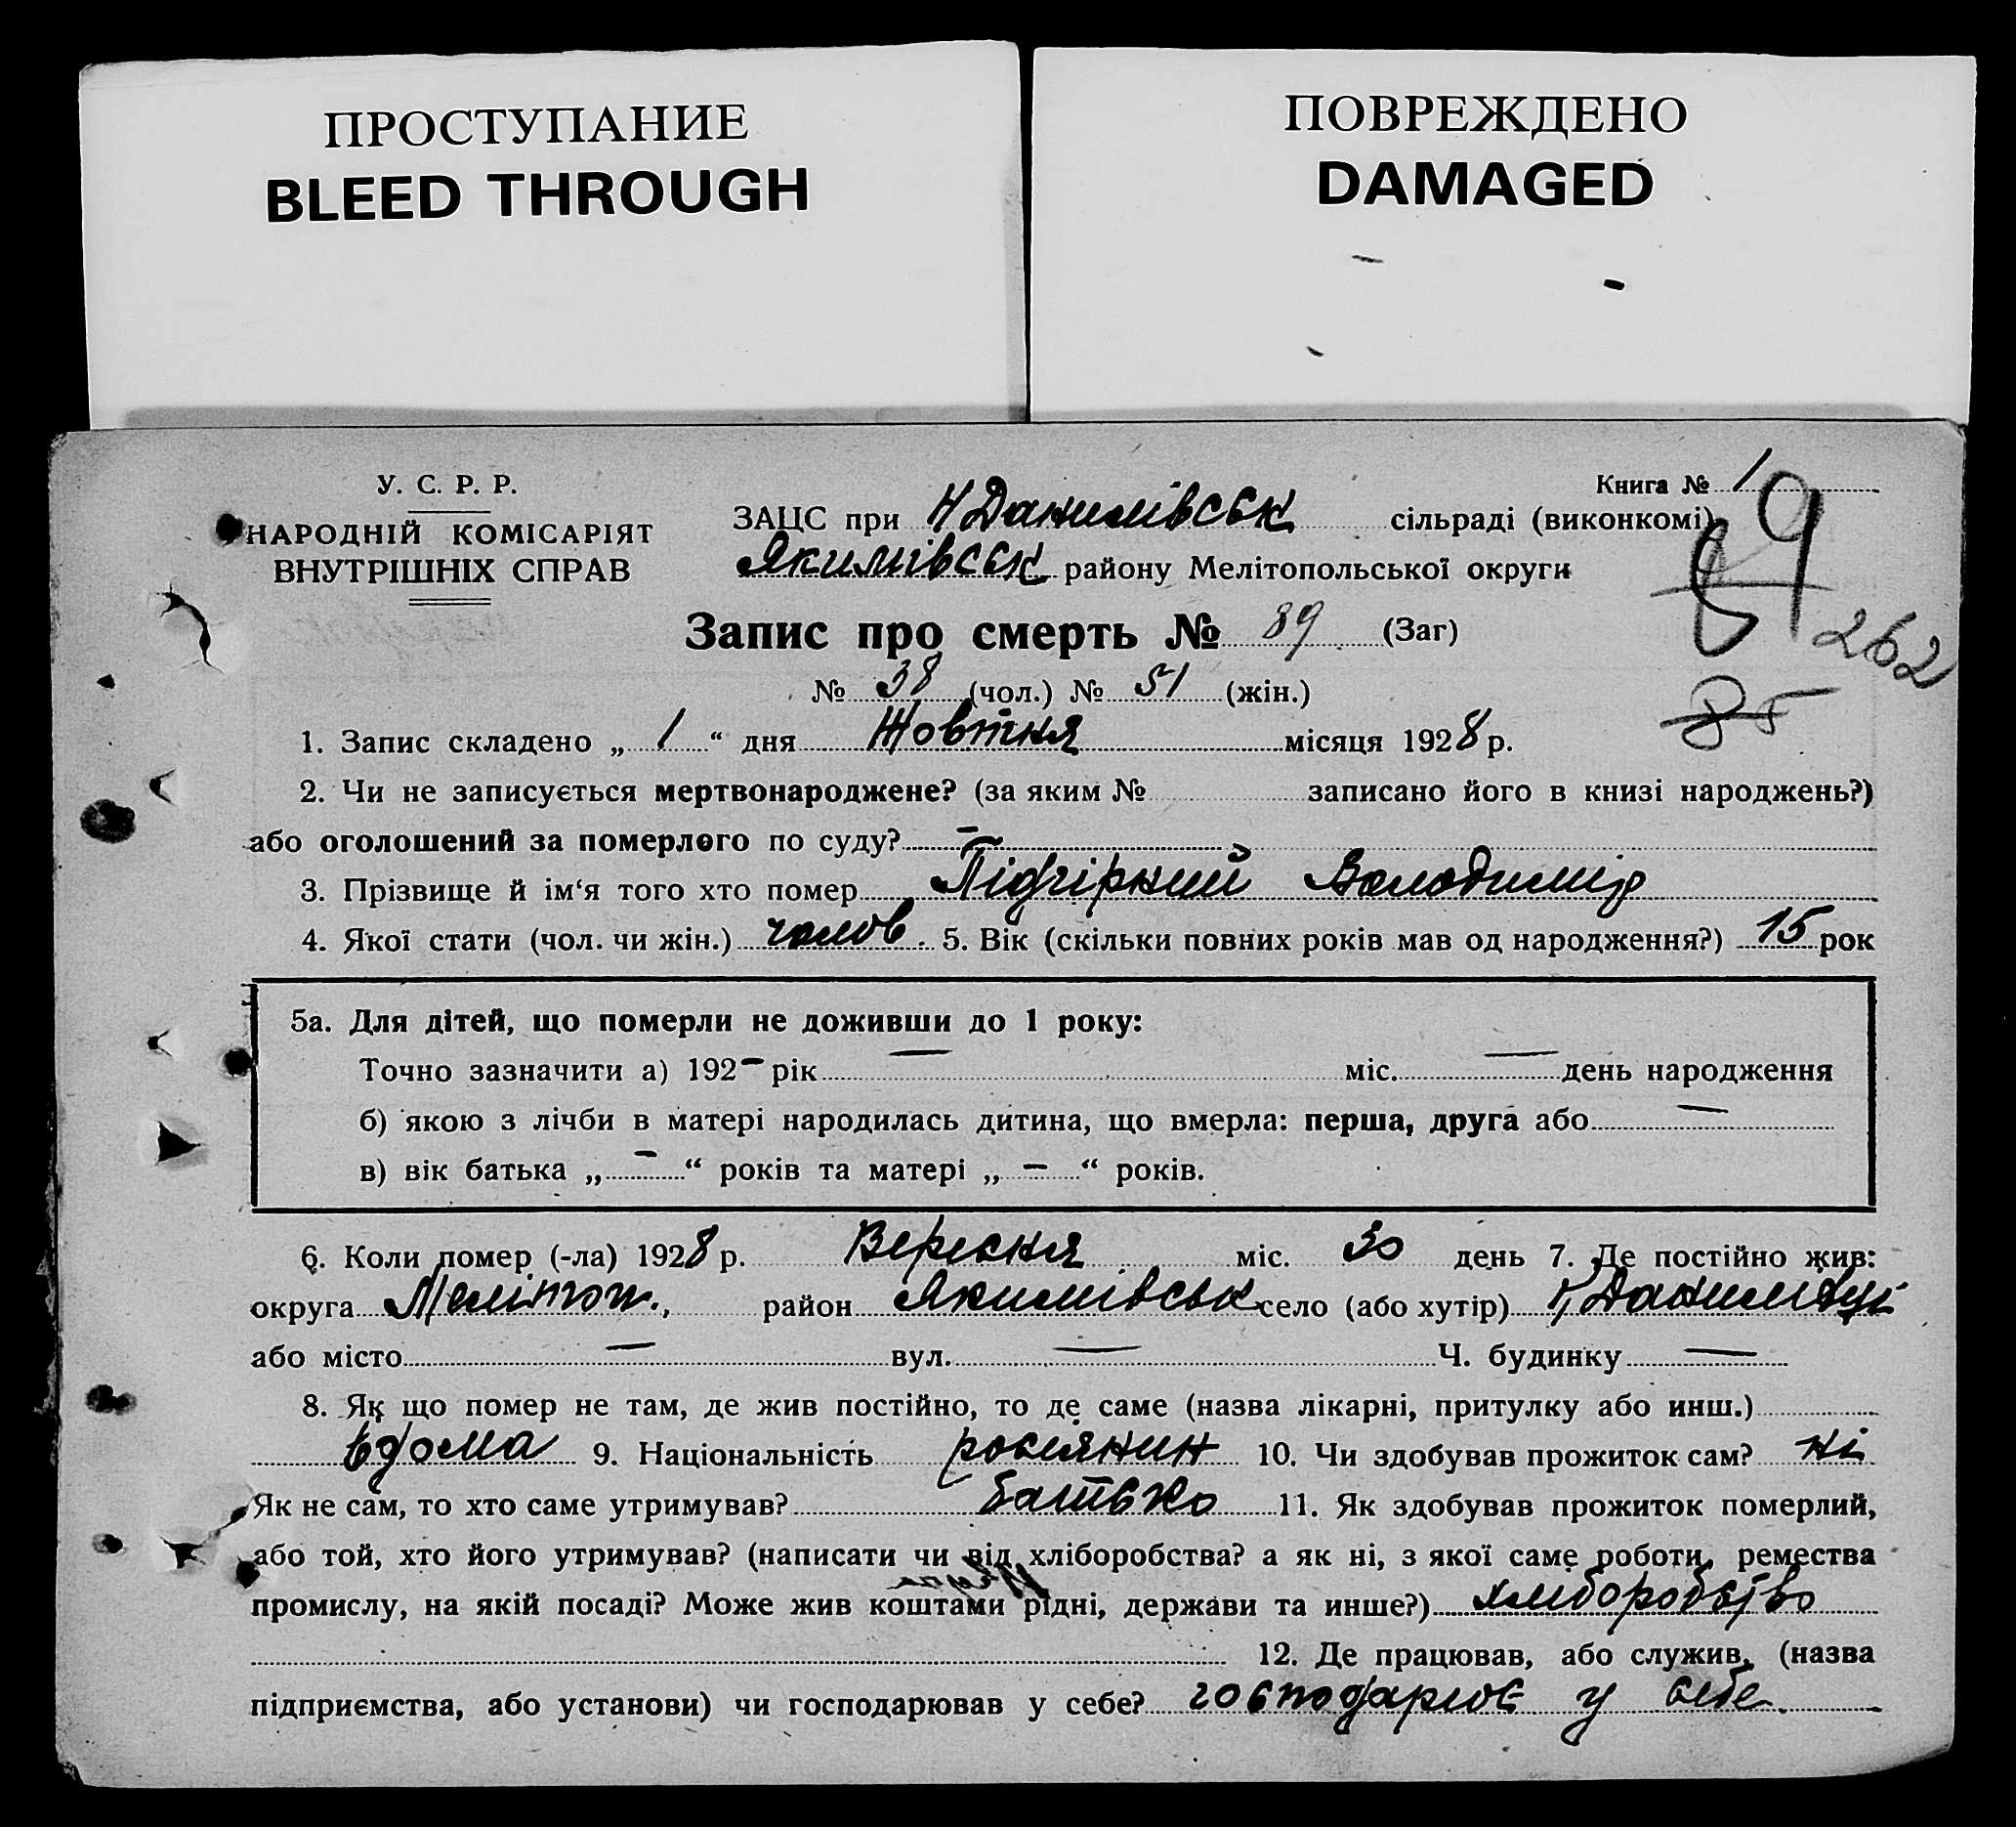 ПРОСТУПАНИЕ
BLEED THROUGH
ПОВРЕЖДЕНО
DAMAGED
У. С. Р. Р.
НАРОДНІЙ КОМІСАРІЯТ
ВНУТРІШНІХ СПРАВ
Книга № 1
ЗАЦС при Н Данилівськ сільраді (виконкомі)
Якимівськ району Мелітопольської округи
Запис про смерть № 89 (Заг)
262
№ 38 (чол.) № 51 (жін.)
85
1. Запис складено „ 1 “ дня Жовтня місяця 1928 р.
2. Чи не записується мертвонароджене? (за яким № записано його в книзі народжень?)
або оголошений за померлого по суду? –
3. Прізвище й ім‘я того хто помер Підгірний Володимір
4. Якої стати (чол. чи жін.) чолов. 5. Вік (скільки повних років мав од народження?) 15 рок
5а. Для дітей, що померли не доживши до 1 року:
Точно зазначити а) 192– рік — міс. — день народження
б) якою з лічби в матері народилась дитина, що вмерла: перша, друга або —
в) вік батька „ – “ років та матері „ – “ років.
6. Коли помер (-ла) 1928 р. Вересня міс. 30 день 7. Де постійно жив:
округа Мелітоп., район Якимівськ село (або хутір) Н Данилівці
або місто — вул. — Ч. будинку —
8. Як що помер не там, де жив постійно, то де саме (назва лікарні, притулку або инш.)
вдома 9. Національність росіянин 10. Чи здобував прожиток сам? ні
Як не сам, то хто саме утримував? батько 11. Як здобував прожиток померлий,
або той, хто його утримував? (написати чи від хліборобства? а як ні, з якої саме роботи, ремества
промислу, на якій посаді? Може жив коштами рідні, держави та инше?) хліборобство
12. Де працював, або служив, (назва
підприємства, або установи) чи господарював у себе? господарює у себе